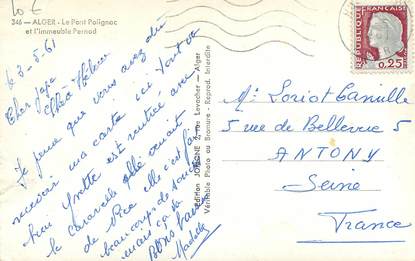 10 €
346 - ALGER - Le Pont Polignac
et l'immeuble Pernod
6.3.61
Cher Jojo
Chère Hélène
Je pense que vous avez dû
recevoir ma carte ici tout va
Yvette est rentrée avec
la caravelle elle venait
de Nice elle s'est fait
beaucoup de
mais ça va
Bons
Edition JOMONE 2, rue Levacher - Alger
Véritable Photo au Bromure - Reprod. Interdite
REPUBLIQUE FRANÇAISE
0,25
Mr Loriot Camille
5 rue de Bellevue 5
ANTONY
Seine
France